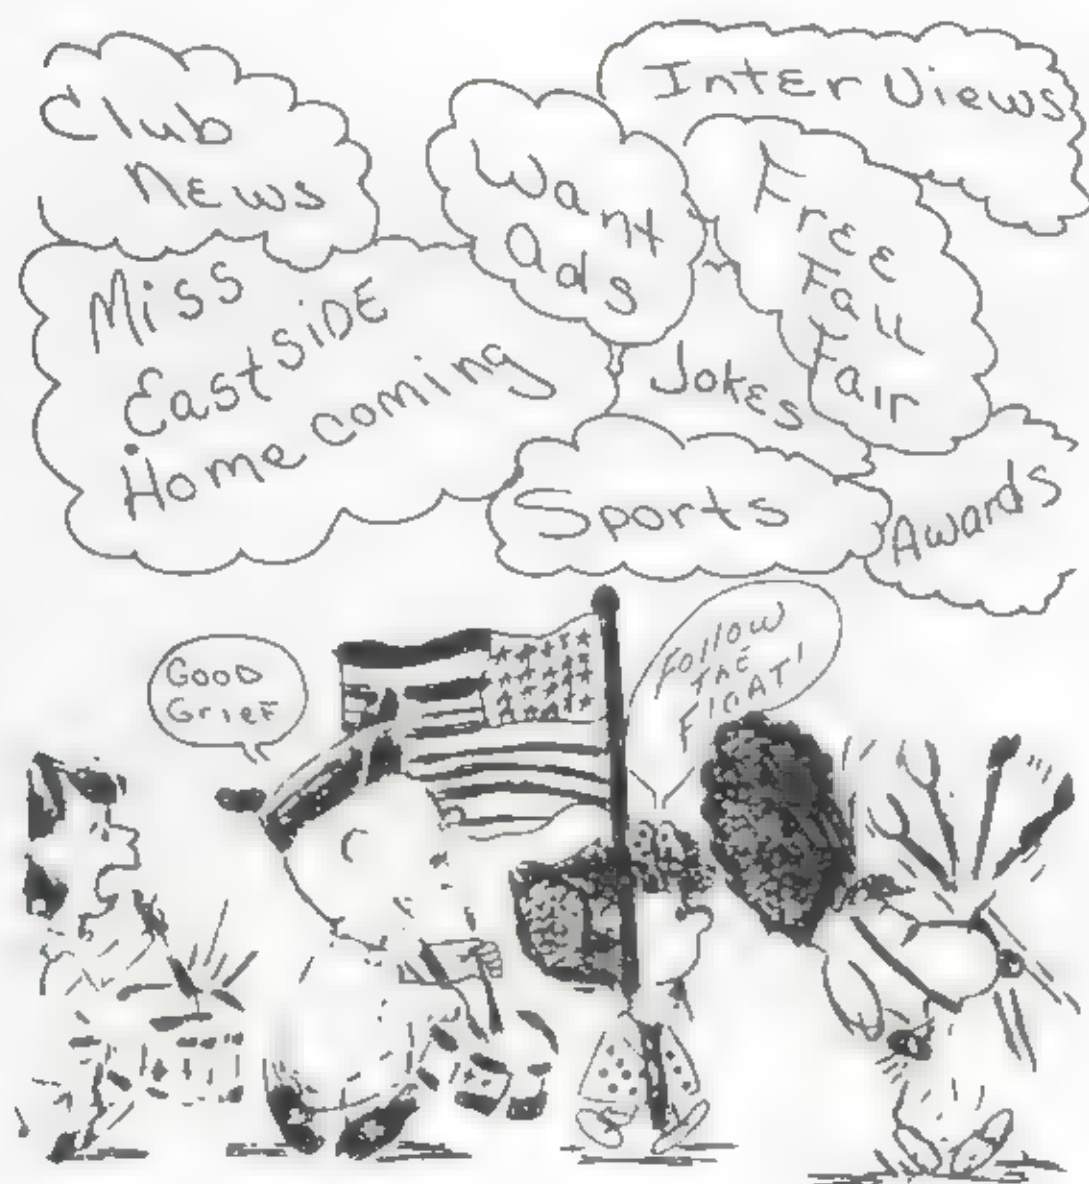 Club
News
Want
Ads
InterViews
Free
Fall
Fair
Miss
EastSiDE
Homecoming
Jokes
Sports
Awards
Good
GrieF
Follow
THE
FloAT!